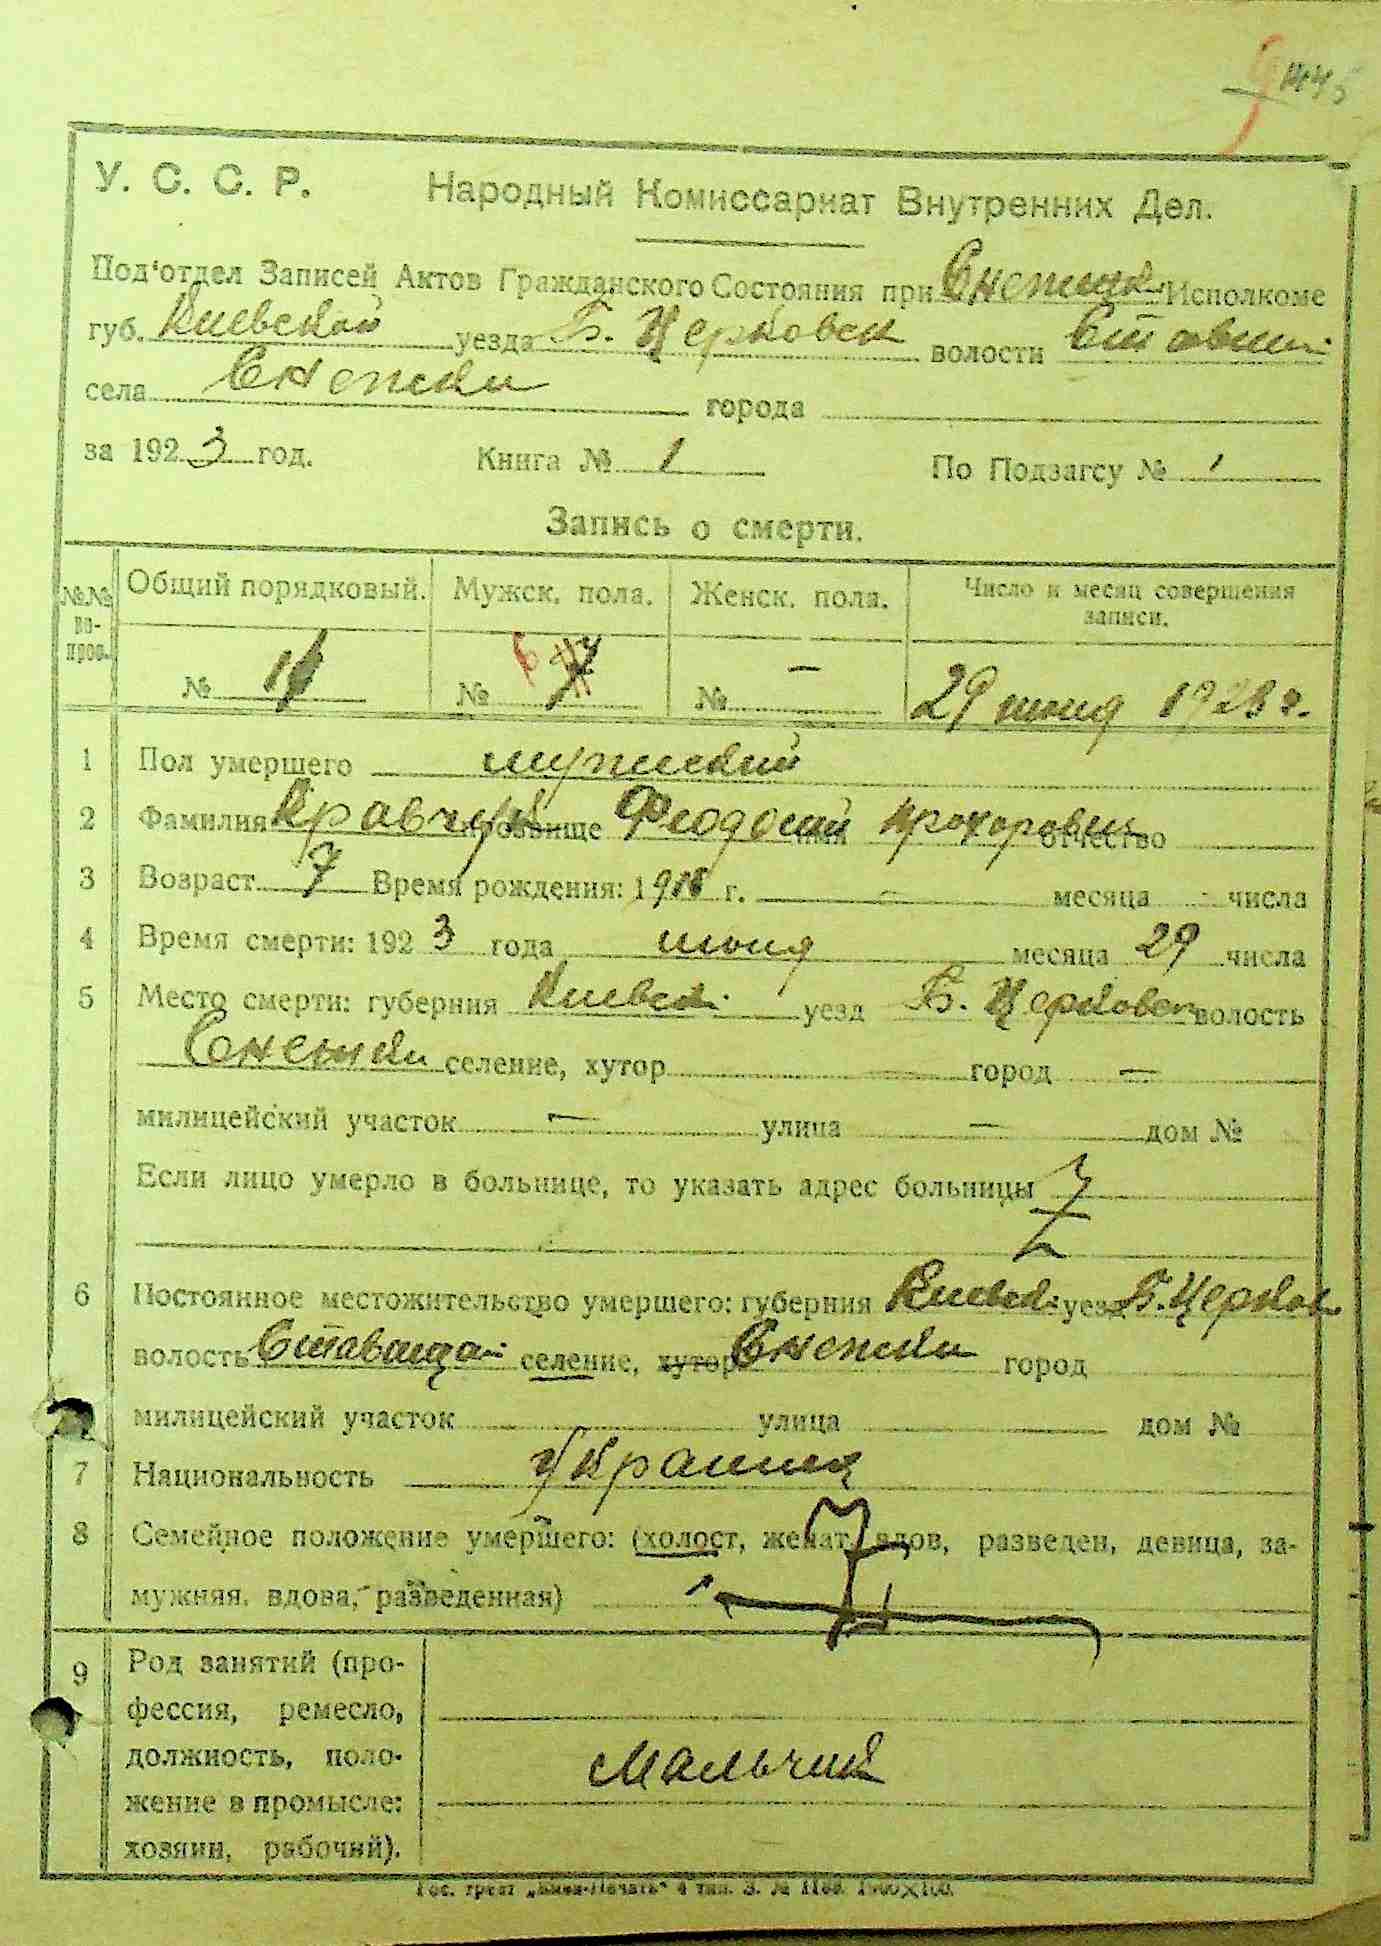 У. С. С. Р. Народный Комиссариат Внутренних Дел.
Под'отдел Записей Актов Гражданского Состояния при Снежк. Исполкоме
губ. Киевской уезда Б. Церковск волости Ставищ.
села Снежки города
за 1923 год. Книга № 1 По Подзагсу № 1
Запись о смерти.
№№ во- прос. Общий порядковый. Мужск. пола. Женск. пола. Число и месяц совершения
записи.
№ № 6 7 № – 29 июня 1923 г.
1 Пол умершего мужский
2 Фамилия Кравчук прозвище Феодосий имя Прохорович отчество
3 Возраст 7 Время рождения: 1916 г. – месяца - числа
4 Время смерти: 1923 года июня месяца 29 числа
5 Место смерти: губерния Киевск. уезд Б. Церковск волость
Снежки селение, хутор город –
милицейский участок – улица – дом №
Если лицо умерло в больнице, то указать адрес больницы
6 Постоянное местожительство умершего: губерния Киевск. уезд Б. Церков
волость Ставищан селение, хутор Снежки город
милицейский участок улица дом №
7 Национальность Украинец
8 Семейное положение умершего: (холост, женат, вдов, разведен, девица, за-
мужняя, вдова, разведенная)
9 Род занятий (про-
фессия, ремесло,
должность, поло-
жение в промысле: Мальчик
хозяин, рабочий).
Гос. трест „Киев-Печать“ 4 тип. З. №